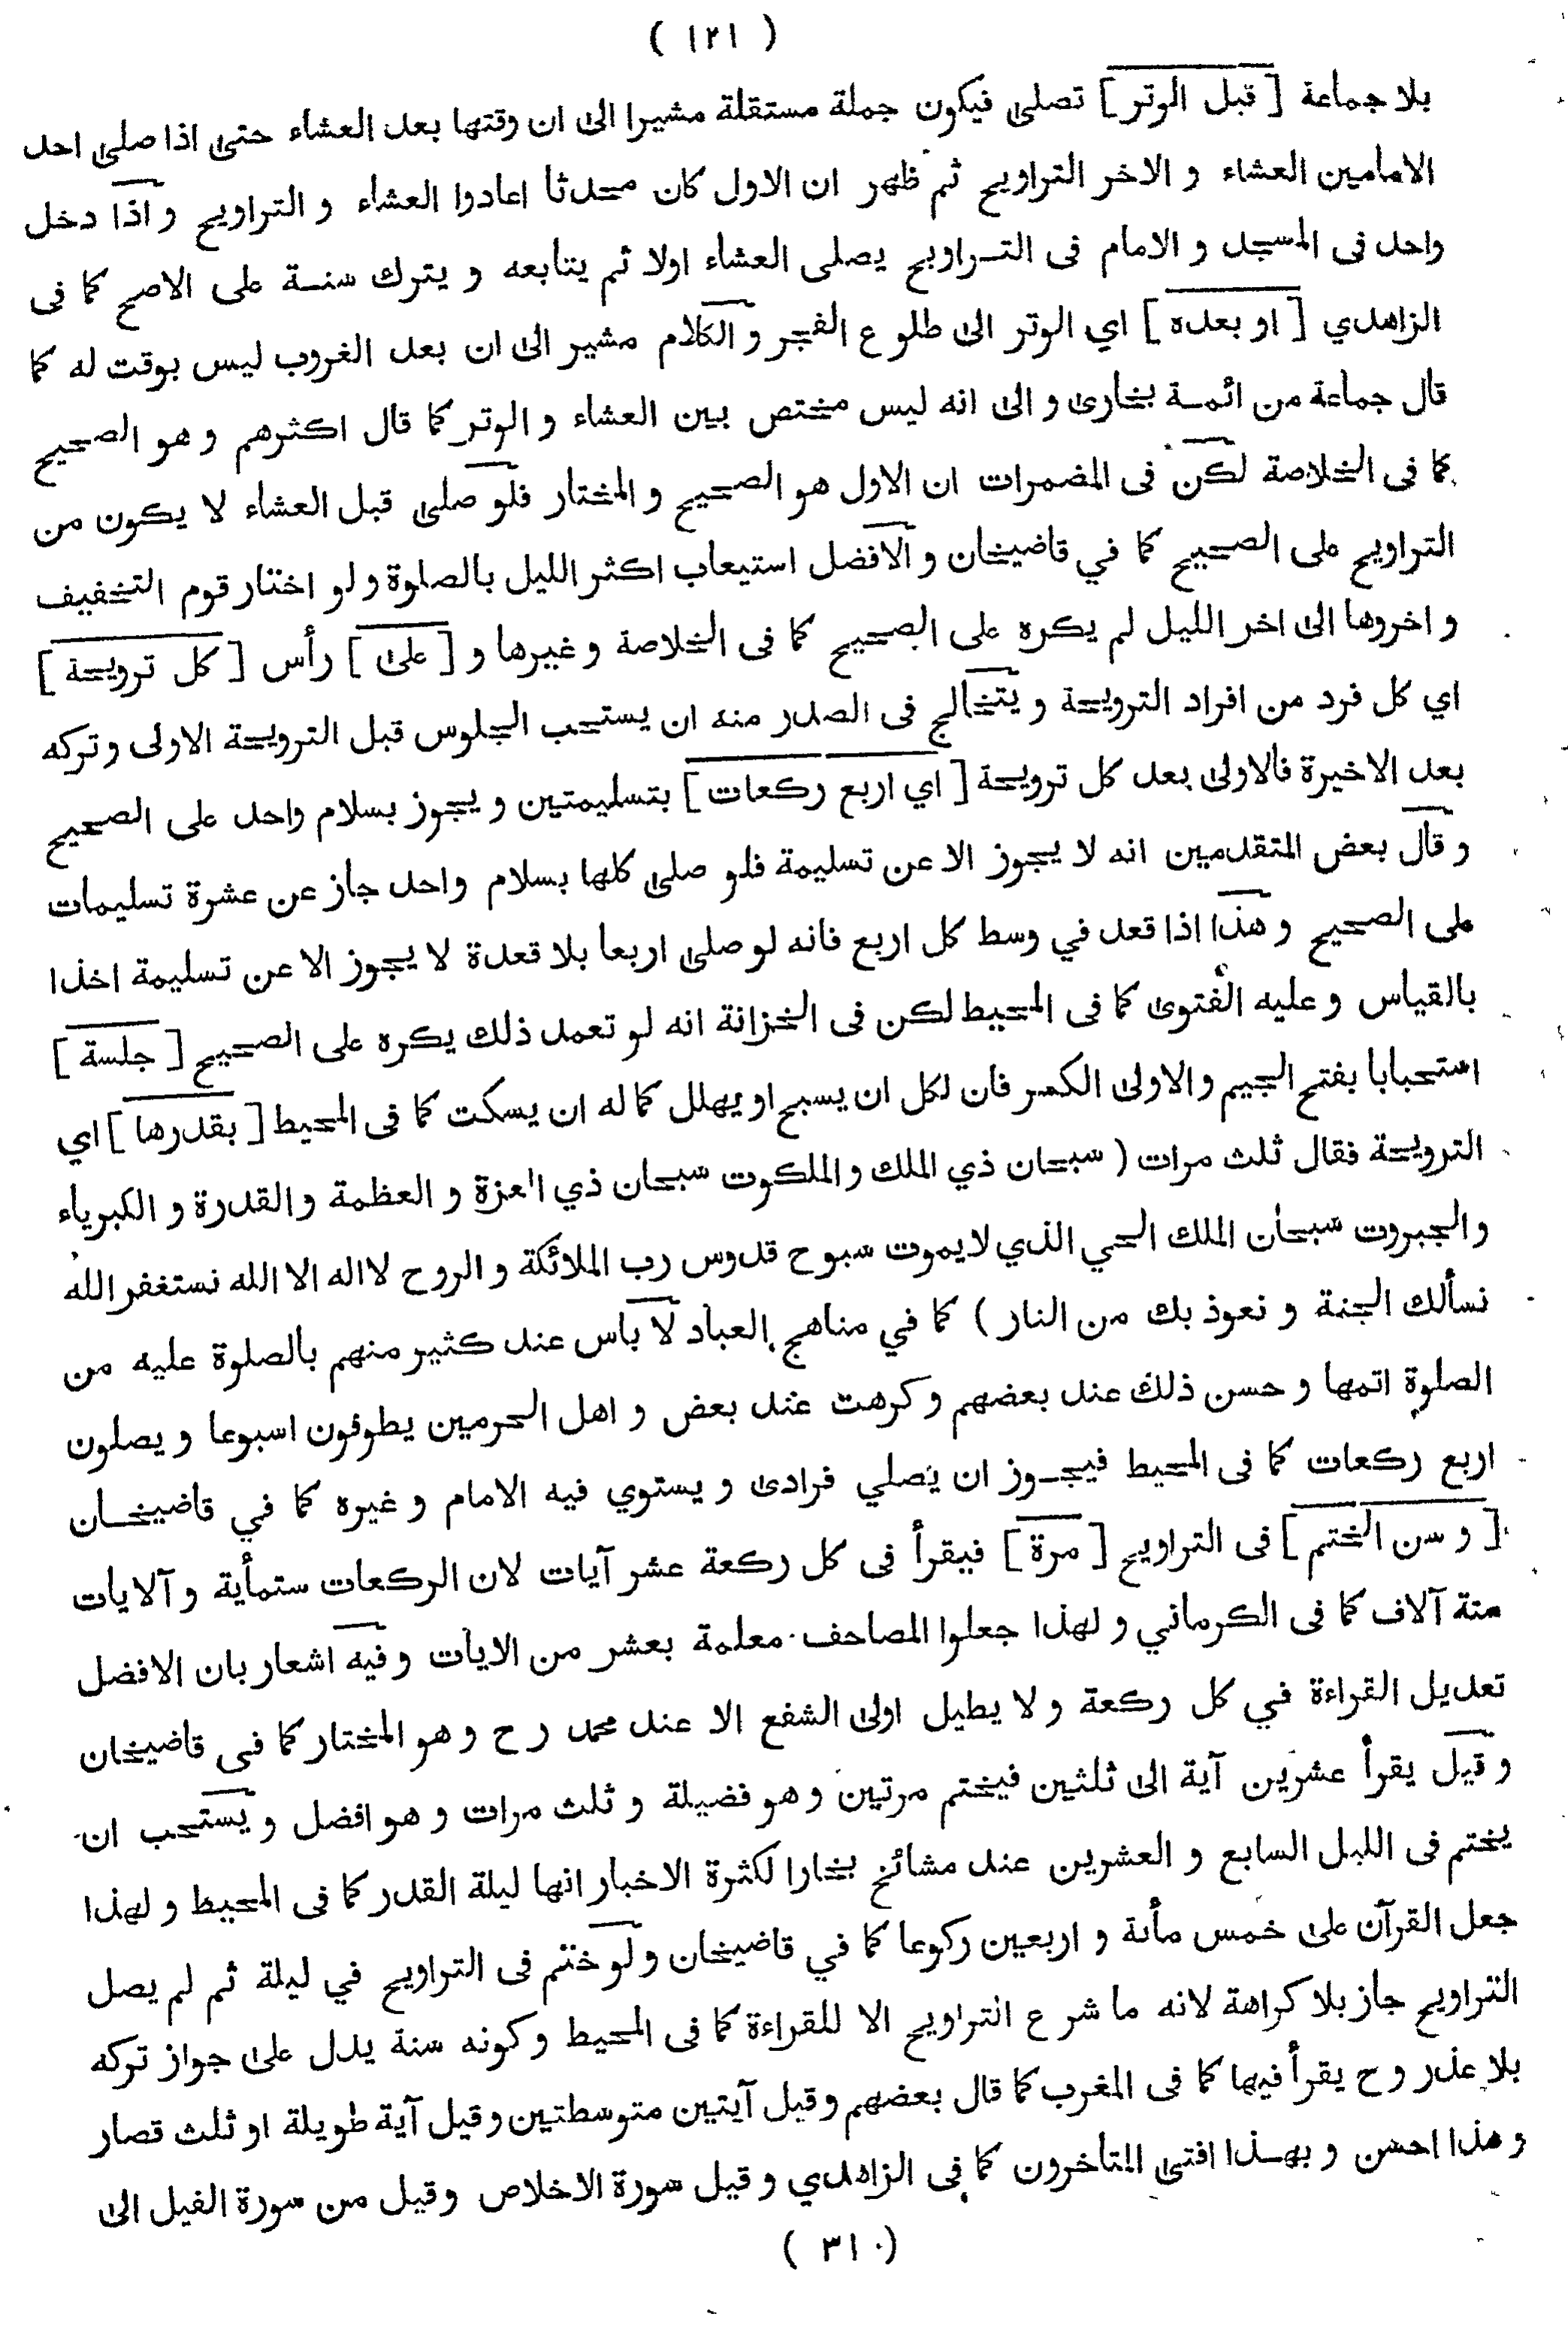 ( ١٢١ )
بلا جماعة [ قبل الوتر ] تصلى فيكون جملة مستقلة مشيرا الى ان وقتها بعد العشاء حتى اذا صلى احد
الامامين العشاء و الاخر التراويح ثم ظهر ان الاول كان محدثا اعادوا العشاء و التراويح و اذا دخل
واحد فى المسجد و الامام فى التراويح يصلى العشاء اولا ثم يتابعه و يترك سنة على الاصح كما فى
الزاهدي [ او بعده ] اي الوتر الى طلوع الفجر و الكلام مشير الى ان بعد الغروب ليس بوقت له كما
قال جماعة من ائمة بخارى و الى انه ليس مختص بين العشاء و الوتر كما قال اكثرهم و هو الصحيح
كما فى الخلاصة لكن فى المضمرات ان الاول هو الصحيح و المختار فلو صلى قبل العشاء لا يكون من
التراويح على الصحيح كما في قاضيخان و الافضل استيعاب اكثر الليل بالصلوة و لو اختار قوم التخفيف
و اخروها الى اخر الليل لم يكره على الصحيح كما فى الخلاصة و غيرها و [ على ] رأس [ كل ترويحة ]
اي كل فرد من افراد الترويحة و يتخالج فى الصدر منه ان يستحب الجلوس قبل الترويحة الاولى و تركه
بعد الاخيرة فالاولى بعد كل ترويحة [ اي اربع ركعات ] بتسليمتين و يجوز بسلام واحد على الصحيح
و قال بعض المتقدمين انه لا يجوز الا عن تسليمة فلو صلى كلها بسلام واحد جاز عن عشرة تسليمات
على الصحيح و هذا اذا قعد في وسط كل اربع فانه لو صلى اربعا بلا قعدة لا يجوز الا عن تسليمة اخذا
بالقياس و عليه الفتوى كما فى المحيط لكن فى الخزانة انه لو تعمد ذلك يكره على الصحيح [ جلسة ]
استحبابا بفتح الجيم و الاولى الكسر فان لكل ان يسبح او يهلل كما له ان يسكت كما فى المحيط [ بقدرها ] اي
الترويحة فقال ثلث مرات ( سبحان ذي الملك و الملكوت سبحان ذي العزة و العظمة و القدرة و الكبرياء
و الجبروت سبحان الملك الحي الذي لا يموت سبوح قدوس رب الملائكة و الروح لا اله الا الله نستغفر الله
نسألك الجنة و نعوذ بك من النار ) كما في مناهج العباد لا باس عند كثير منهم بالصلوة عليه من
الصلوة اتمها و حسن ذلك عند بعضهم و كرهت عند بعض و اهل الحرمين يطوفون اسبوعا و يصلون
اربع ركعات كما فى المحيط فيجوز ان يصلي فرادى و يستوي فيه الامام و غيره كما في قاضيخان
[ و سن الختم ] فى التراويح [ مرة ] فيقرأ فى كل ركعة عشر آيات لان الركعات ستمأية و آلايات
ستة آلاف كما فى الكرماني و لهذا جعلوا المصاحف معلمة بعشر من الايات و فيه اشعار بان الافضل
تعديل القراءة في كل ركعة و لا يطيل اولى الشفع الا عند محمد رح و هو المختار كما فى قاضيخان
و قيل يقرأ عشرين آية الى ثلثين فيختم مرتين و هو فضيلة و ثلث مرات و هو افضل و يستحب ان
يختم فى الليل السابع و العشرين عند مشائخ بخارا لكثرة الاخبار انها ليلة القدر كما فى المحيط و لهذا
جعل القرآن على خمس مأة و اربعين ركوعا كما في قاضيخان و لو ختم فى التراويح في ليلة ثم لم يصل
التراويح جاز بلا كراهة لانه ما شرع التراويح الا للقراءة كما فى المحيط و كونه سنة يدل على جواز تركه
بلا عذر و ح يقرأ فيها كما فى المغرب كما قال بعضهم و قيل آيتين متوسطتين و قيل آية طويلة او ثلث قصار
و هذا احسن و بهذا افتى المتأخرون كما فى الزاهدي و قيل سورة الاخلاص و قيل من سورة الفيل الى
( ٣١ )